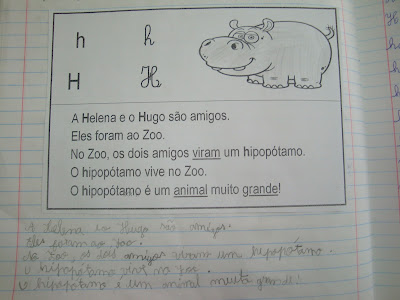 h h
H H
A Helena e o Hugo são amigos.
Eles foram ao Zoo.
No Zoo, os dois amigos viram um hipopótamo.
O hipopótamo vive no Zoo.
O hipopótamo é um animal muito grande!
A Helena e o Hugo são amigos.
Eles foram ao Zoo.
No Zoo, os dois amigos viram um hipopótamo.
O hipopótamo vive no Zoo.
O hipopótamo é um animal muito grande!